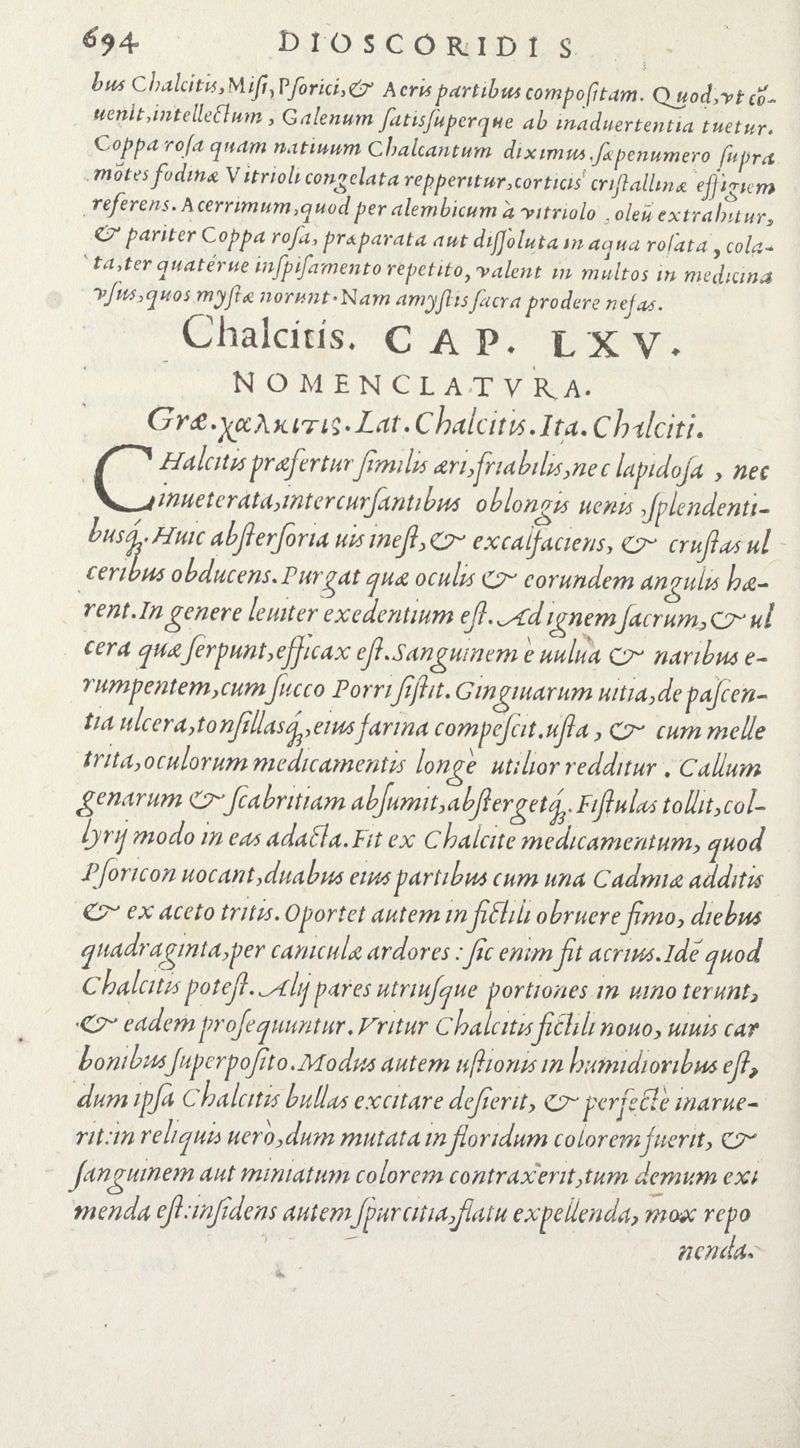 694 DIOSCORIDIS
bus Chalcitis, Misi, Psorici, & Acris partibus compositam. Quod, vt cõ-
uenit, intellectum, Galenum satis superque ab inaduertentia tuetur.
Coppa rosa quam natiuum Chalcantum diximus, sæpenumero supra
mõtes fodinæ Vitrioli congelata repperitur, corticis cristallinæ effigiem
referens. Acerrimum, quod per alembicum à vitriolo, oleũ extrahitur,
& pariter Coppa rosa, præparata aut dissoluta in aqua rosata, cola-
ta, ter quatérue inspisamento repetito, valent in multos in medicina
vsus, quos mystæ norunt. Nam amystis sacra prodere nefas.
Chalcitis. CAP. LXV.
NOMENCLATVRA.
Græ. χαλκιτις. Lat. Chalcitis. Ita. Chalciti.
CHalcitis præfertur similis æri, friabilis, nec lapidosa, nec
inueterata, intercurfantibus oblongis uenis, splendenti-
busq́;. Huic absterforia uis inest, & excalfaciens, & crustas ul
ceribus obducens. Purgat quæ oculis & eorundem angulis hæ-
rent. In genere leuiter exedentium est. Ad ignem sacrum, & ul
cera quæ serpunt, efficax est. Sanguinem è uulua & naribus e-
rumpentem, cum succo Porri sistit. Gingiuarum uitia, depascen-
tia ulcera, tonsillasq́;, eius farina compescit. usta, & cum melle
trita, oculorum medicamentis longè utilior redditur. Callum
genarum & scabritiam absumit, abstergetq́;. Fistulas tollit, col-
lyrij modo in eas adacta. Fit ex Chalcite medicamentum, quod
Psoricon uocant, duabus eius partibus cum una Cadmiæ additis
& ex aceto tritis. Oportet autem in fictili obruere fimo, diebus
quadraginta, per caniculæ ardores: sic enim fit acrius. Idẽ quod
Chalcitis potest. Alij pares utriusque portiones in uino terunt,
& eadem prosequuntur. Vritur Chalcitis fictili nouo, uiuis car
bonibus superposito. Modus autem ustionis in humidioribus est,
dum ipsa Chalcitis bullas excitare desierit, & perfectè inarue-
rit: in reliquis uerò, dum mutata in floridum colorem fuerit, &
sanguinem aut miniatum colorem contraxerit, tum demum exi
menda est: insidens autem spurcitia, flatu expellenda, mox repo
nenda.